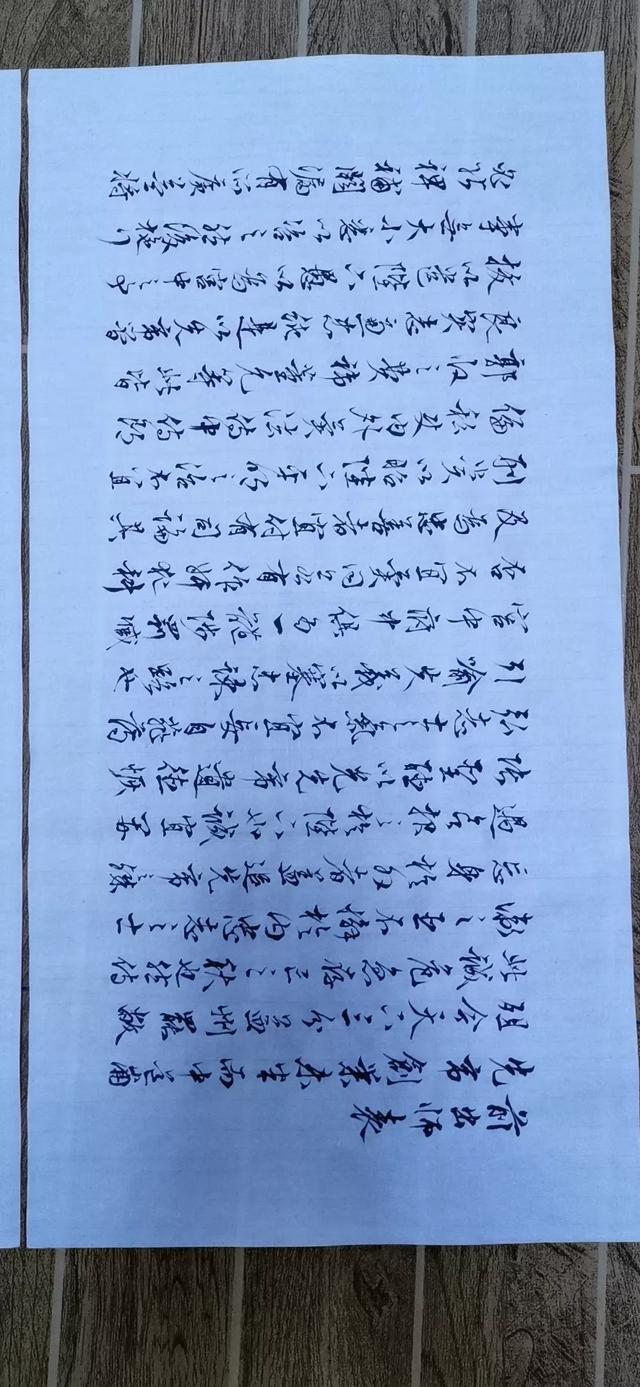 前出師表
先帝創業未半而中道崩
殂今天下三分益州罷敝
此誠危急存亡之秋也然侍
衛之臣不懈於內忠志之士
忘身於外者蓋追先帝之殊
遇欲報之於陛下也誠宜開
張聖聽以光先帝遺德恢
弘志士之氣不宜妄自菲薄
引喻失義以塞忠諫之路也
宮中府中俱為一體陟罰臧
否不宜異同若有作姦犯科
及為忠善者宜付有司論其
刑賞以昭陛下平明之治不宜
偏私使內外異法侍中侍郎
郭攸之費禕董允等此皆
良實志慮忠純是以先帝簡
拔以遺陛下愚以為宮中之
事無大小悉以咨之然後施行
必能裨補闕漏有所廣益將